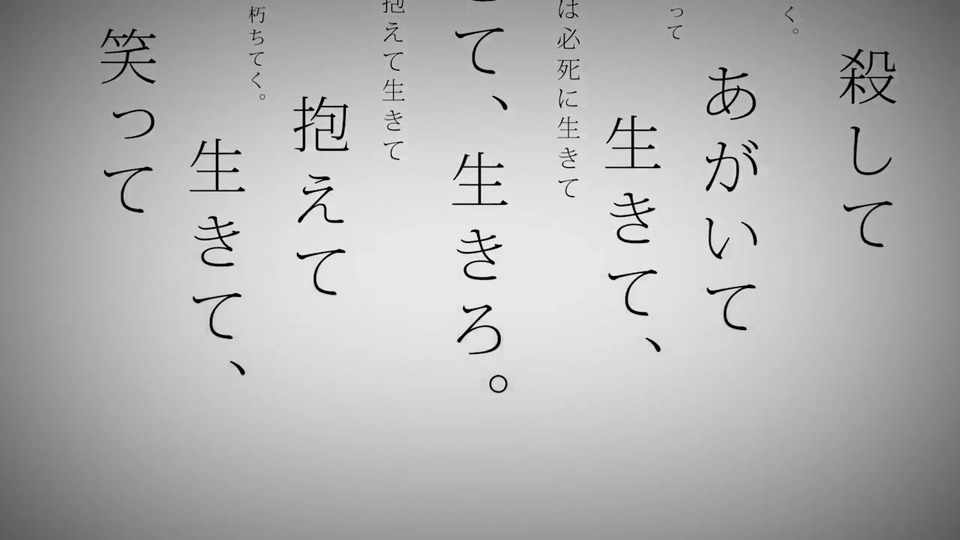 殺して
く。
あがいて
って
生きて、
は必死に生きて
て、生きろ。
抱えて生きて
抱えて
朽ちてく。
生きて、
笑って